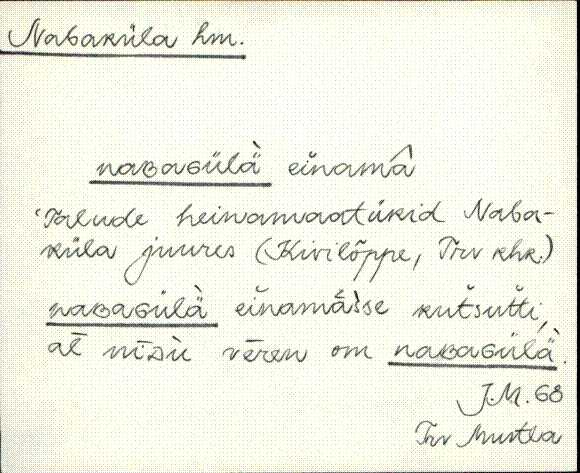 Nabaküla hm.
naʙaɢülä̀ eĭnamâ
'Talude heinamaatükid Naba-
küla juures (Kivilõppe, Trv khk.)
naʙaɢülä̀ eĭnamä̀sse kut́sut́ti,
at̄ nīᴢ̀ù vēren om naʙaɢülä̀.
J.M. 68
Trv Mustla